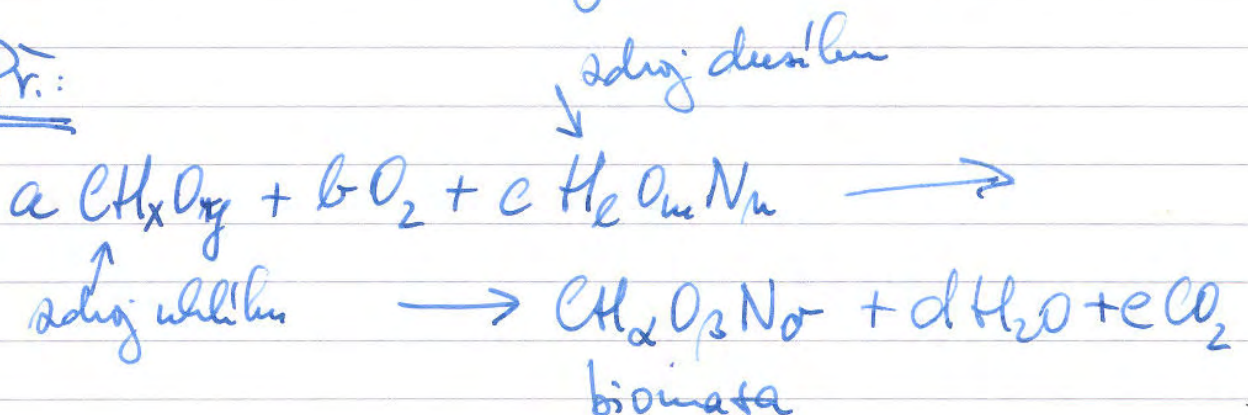 zdroj dusíku
Př.:
a CHₓO_y + b O₂ + c HₗOₘNₙ ⟶
zdroj uhlíku ⟶ CH_αO_βN_σ + d H₂O + e CO₂
biomasa